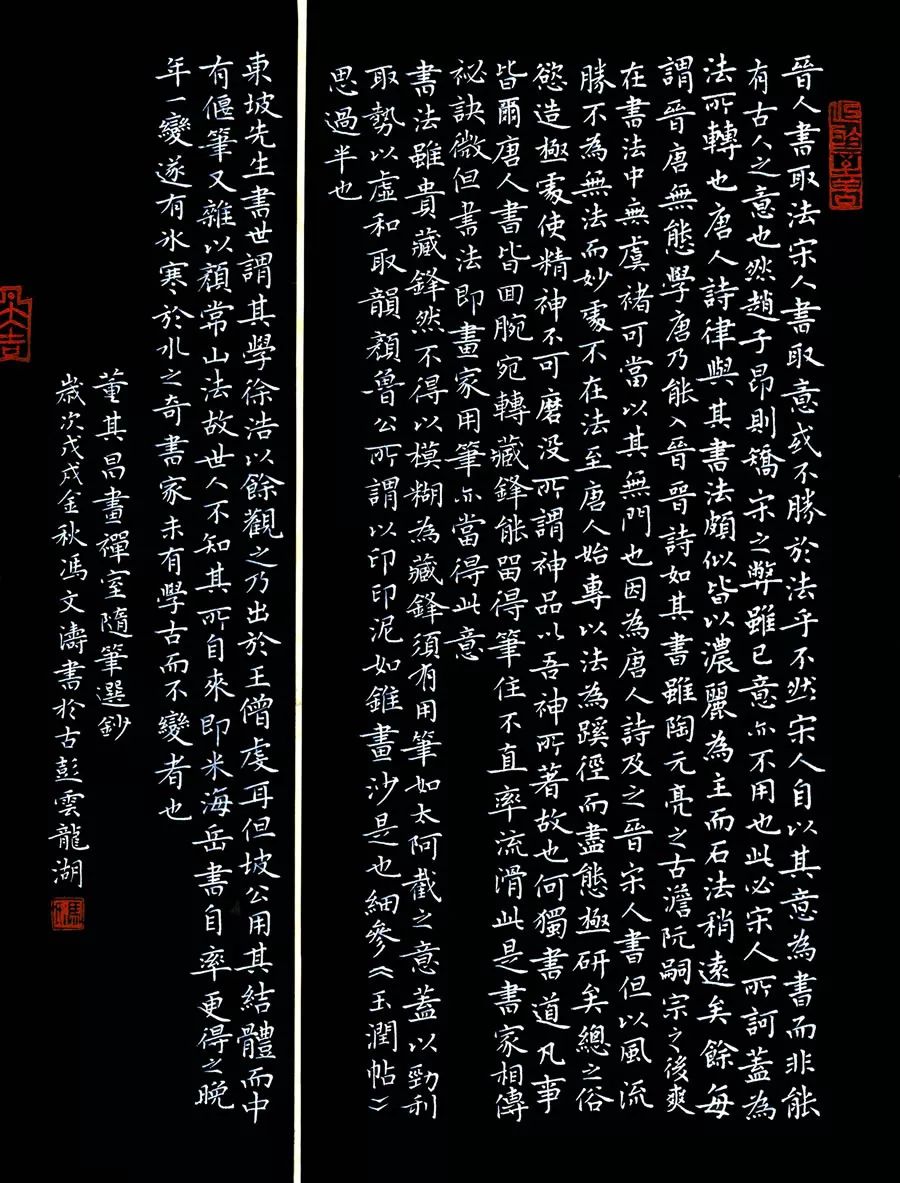 晉人書取法宋人書取意或不勝於法乎不然宋人自以其意為書而非能
有古人之意也然趙子昂則矯宋之弊雖已意亦不用也此必宋人所訶蓋為
法所轉也唐人詩律與其書法頗似皆以濃麗為主而古法稍遠矣餘每
謂晉唐無態學唐乃能入晉晉詩如其書雖陶元亮之古澹阮嗣宗之後爽
在書法中無虞褚可當以其無門也因為唐人詩及之晉宋人書但以風流
勝不為無法而妙處不在法至唐人始專以法為蹊徑而盡態極研矣總之俗
慾造極處使精神不可磨没所謂神品以吾神所著故也何獨書道凡事
皆爾唐人書皆回腕宛轉藏鋒能留得筆住不直率流滑此是書家相傳
祕訣微但書法即畫家用筆亦當得此意
書法雖貴藏鋒然不得以模糊為藏鋒須有用筆如太阿截之意蓋以勁利
取勢以虛和取韻顏魯公所謂以印印泥如錐畫沙是也細參《玉潤帖》
思過半也
東坡先生書世謂其學徐浩以餘觀之乃出於王僧虔耳但坡公用其結體而中
有偃筆又雜以顏常山法故世人不知其所自來即米海岳書自率更得之晚
年一變遂有冰寒於水之奇書家未有學古而不變者也
董其昌畫禪室隨筆選鈔
歲次戊戌金秋馮文濤書於古彭雲龍湖